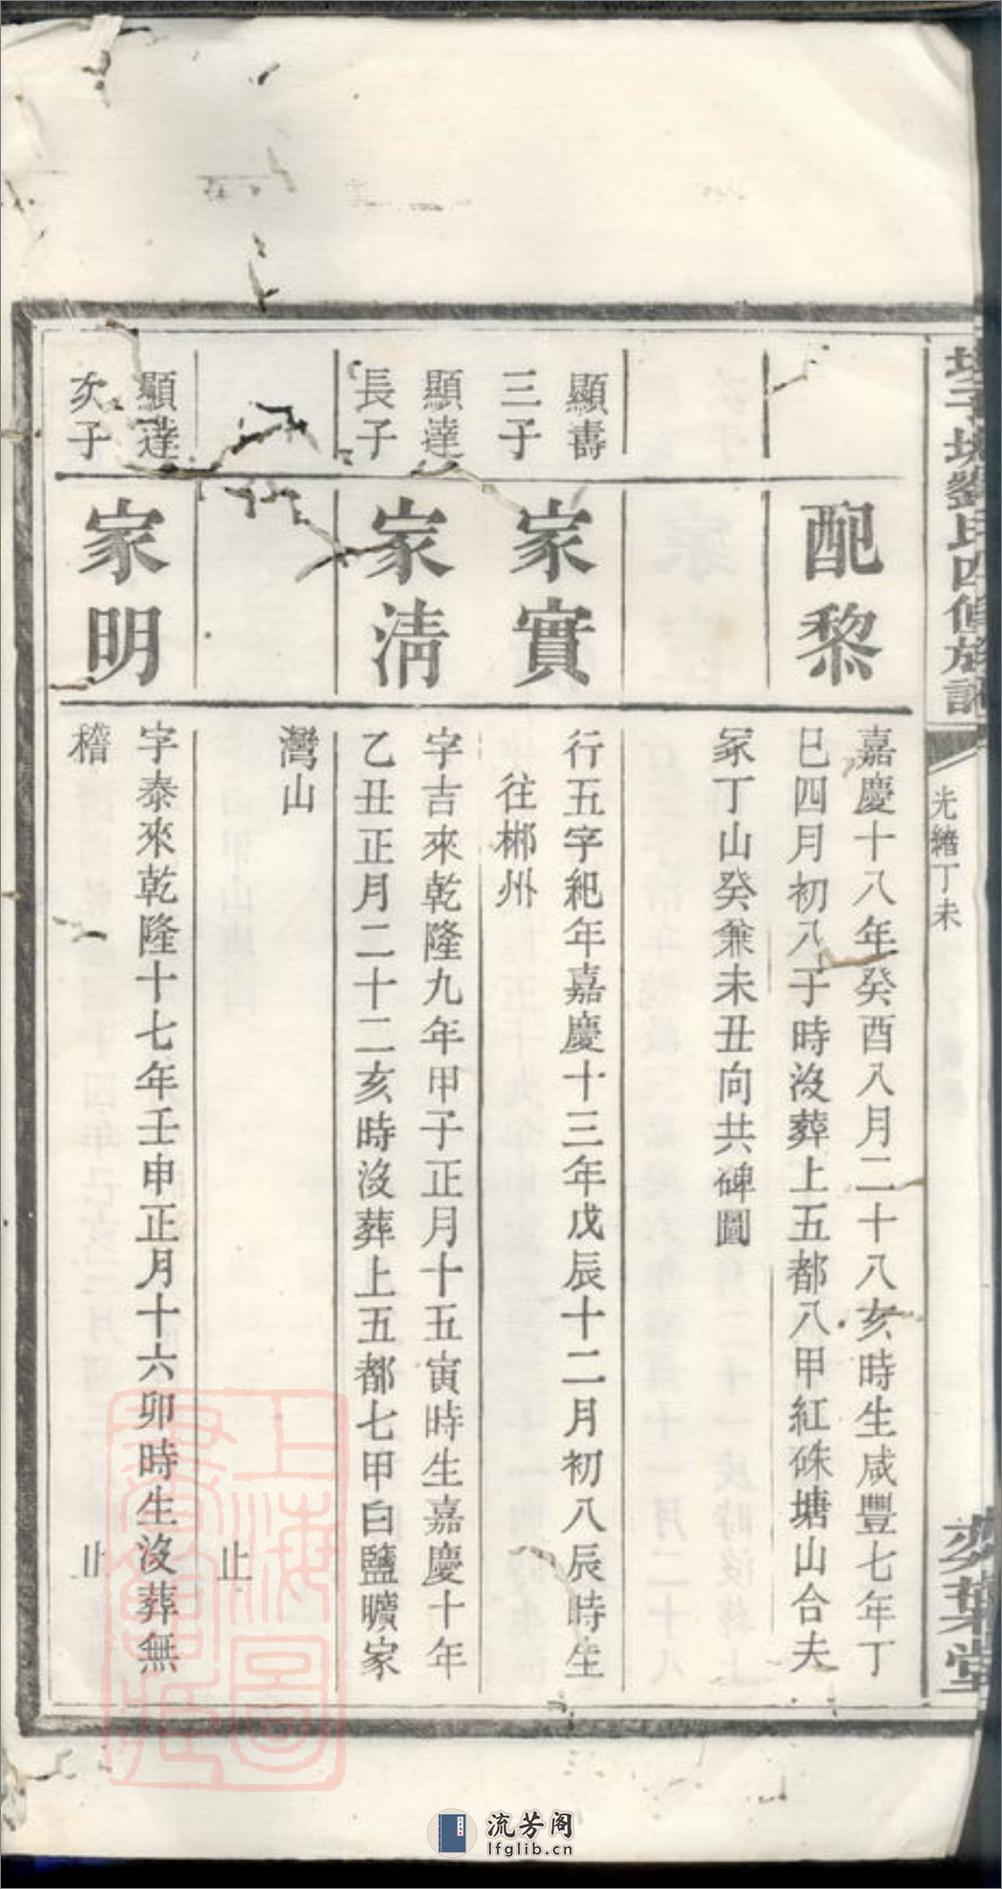 劉氏四修族譜
光緒丁未
葉堂
配黎
嘉慶十八年癸酉八月二十八亥時生咸豐七年丁
巳四月初八子時沒葬上五都八甲紅硃塘山合夫
冢丁山癸兼未丑向共碑圖
顯壽
三子
家實
行五字紀年嘉慶十三年戊辰十二月初八辰時生
往郴州
顯達
長子
家淸
字吉來乾隆九年甲子正月十五寅時生嘉慶十年
乙丑正月二十二亥時沒葬上五都七甲白鹽曠家
灣山
止
顯達
次子
家明
字泰來乾隆十七年壬申正月十六卯時生沒葬無
稽
止
上海圖書館藏
流芳阁
lfglib.cn